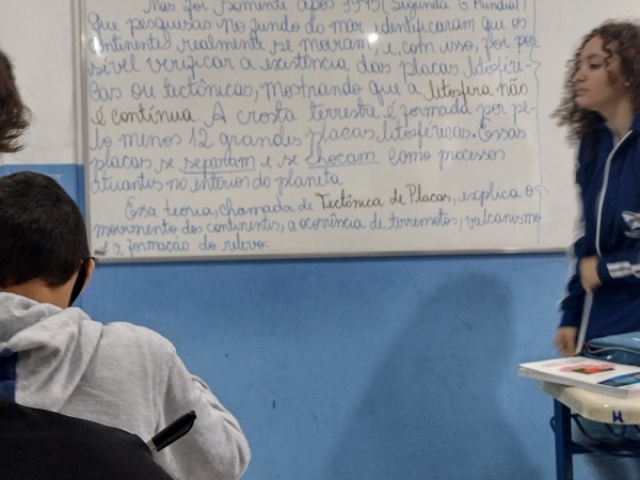 Mas foi somente após 1945 (Segunda G Mundial)
que pesquisas no fundo do mar identificaram que os
continentes realmente se moviam e, com isso, foi pos
sível verificar a existência das placas litosféri-
cas ou tectônicas, mostrando que a litosfera não
é contínua. A crosta terrestre é formada por pe-
lo menos 12 grandes placas litosféricas. Essas
placas se separam e se chocam como processos
atuantes no interior do planeta.
Essa teoria, chamada de Tectônica de Placas, explica o
movimento dos continentes, a ocorrência de terremotos, vulcanismo
e a formação do relevo.